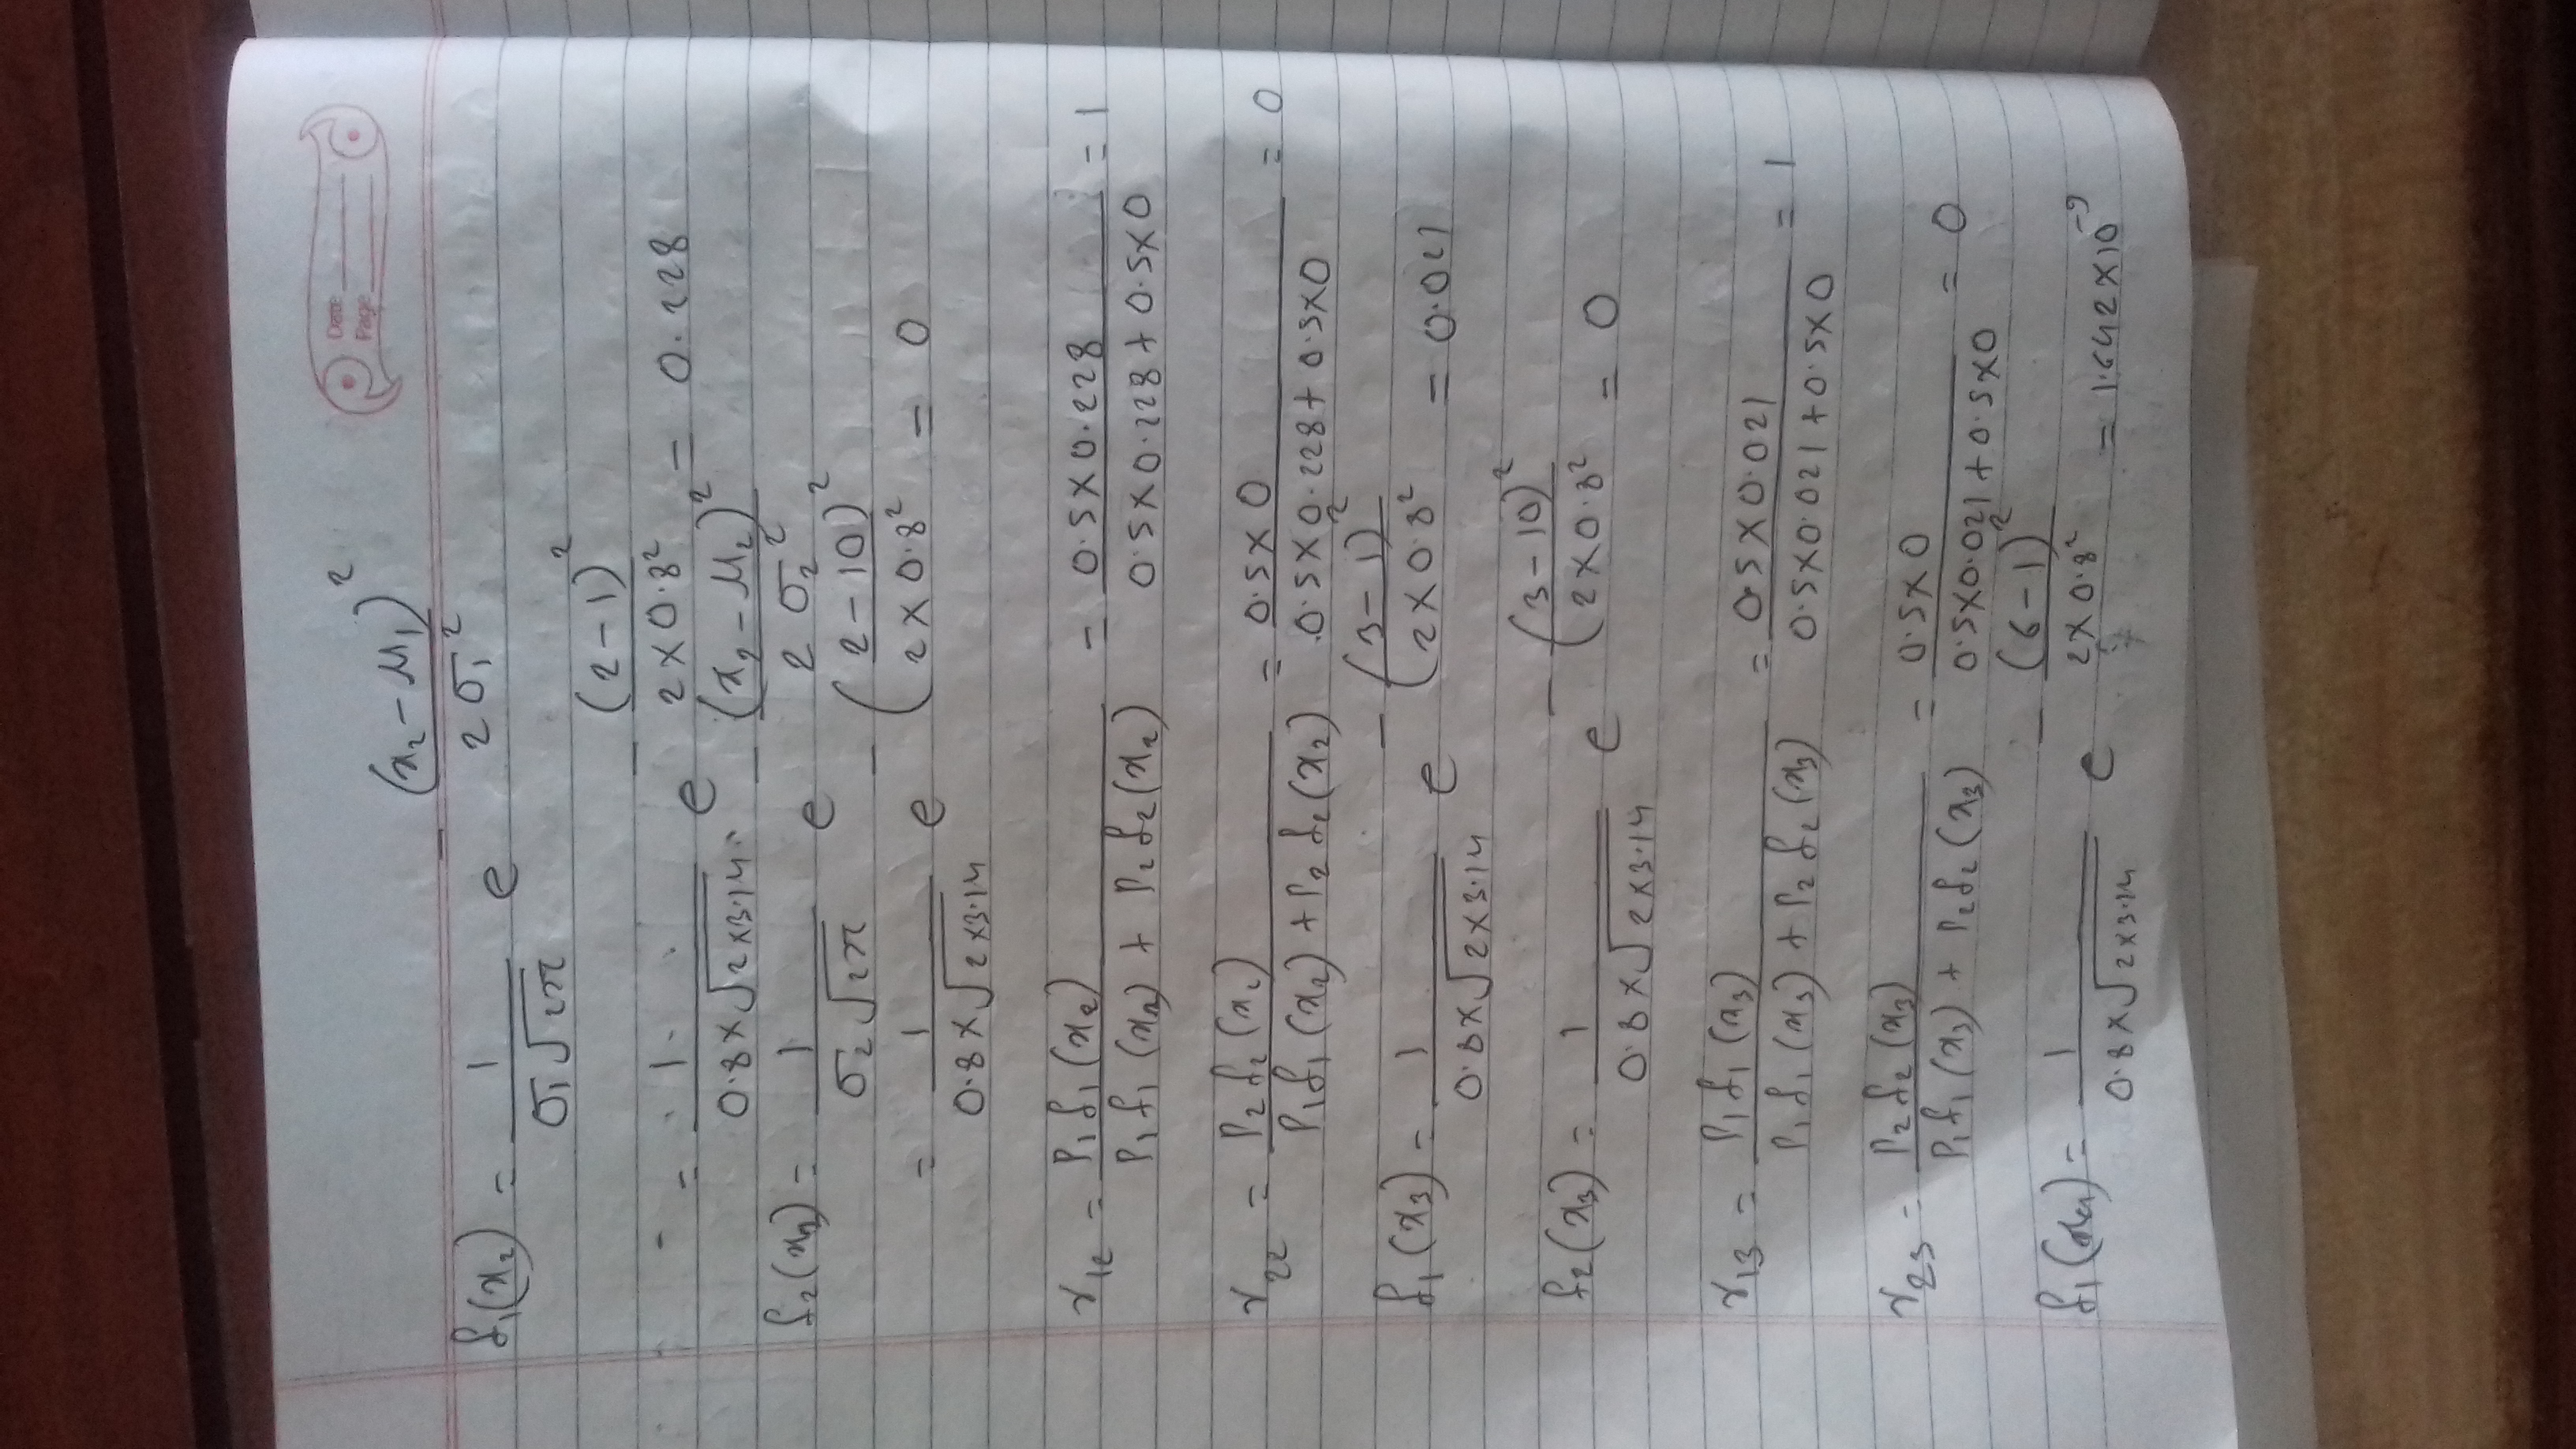 Date
Page
f₁(x₂) = 1/(σ₁√2π) e^(-(x₂-μ₁)²/(2σ₁²))
= 1/(0.8×√2×3.14) e^(-(2-1)²/(2×0.8²)) = 0.228
f₂(x₂) = 1/(σ₂√2π) e^(-(x₂-μ₂)²/(2σ₂²))
= 1/(0.8×√2×3.14) e^(-(2-10)²/(2×0.8²)) = 0
r₁₂ = P₁f₁(x₂)/(P₁f₁(x₂) + P₂f₂(x₂)) = 0.5×0.228/(0.5×0.228+0.5×0) = 1
r₂₂ = P₂f₂(x₂)/(P₁f₁(x₂)+P₂f₂(x₂)) = 0.5×0/(0.5×0.228+0.5×0) = 0
f₁(x₃) = 1/(0.8×√2×3.14) e^(-(3-1)²/(2×0.8²)) = 0.021
f₂(x₃) = 1/(0.8×√2×3.14) e^(-(3-10)²/(2×0.8²)) = 0
r₁₃ = P₁f₁(x₃)/(P₁f₁(x₃)+P₂f₂(x₃)) = 0.5×0.021/(0.5×0.021+0.5×0) = 1
r₂₃ = P₂f₂(x₃)/(P₁f₁(x₃)+P₂f₂(x₃)) = 0.5×0/(0.5×0.021+0.5×0) = 0
f₁(x₄) = 1/(0.8×√2×3.14) e^(-(6-1)²/(2×0.8²)) = 1.642×10⁻⁹